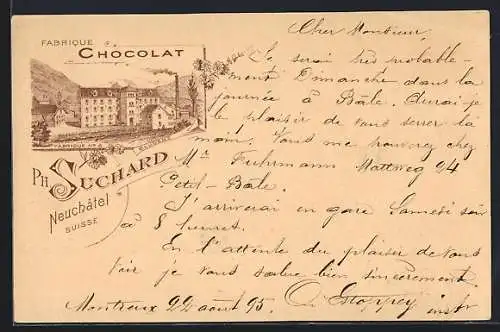 FABRIQUE
CHOCOLAT
FABRIQUE No 2
PH. SUCHARD
Neuchâtel
SUISSE
Cher Monsieur,
Je serai très probable-
ment Dimanche dans la
journée à Bâle. Aurai je
le plaisir de vous serrer la
main. Vous me trouverez chez
Mr Fuhrmann Mattweg 24
Petit-Bâle.
J'arriverai en gare Samedi soir
à 8 heures.
En l'attente du plaisir de vous
voir je vous salue bien sincèrement.
Montreux 22 août 95.
instr